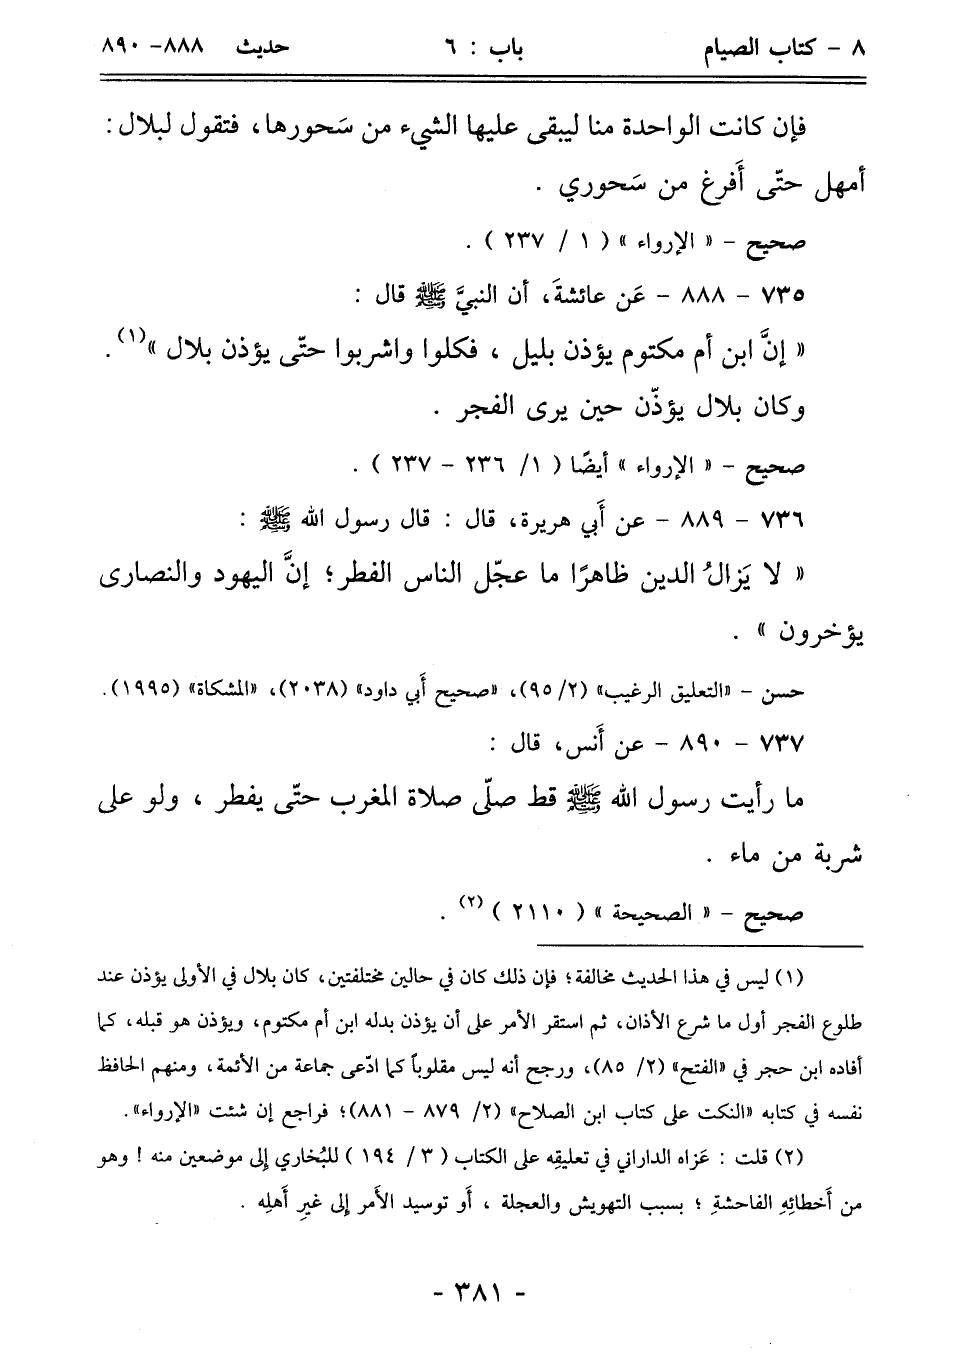 ٨ - كتاب الصيام باب : ٦ حديث ٨٨٨- ٨٩٠
فإن كانت الواحدة منا ليبقى عليها الشيء من سَحورها، فتقول لبلال :
أمهل حتّى أَفرغ من سَحوري .
صحيح - « الإرواء » ( ١ / ٢٣٧ ) .
٧٣٥ - ٨٨٨ - عَن عائشةَ، أن النبيَّ ﷺ قال :
« إنَّ ابن أم مكتوم يؤذن بليل ، فكلوا واشربوا حتّى يؤذن بلال »(١).
وكان بلال يؤذّن حين يرى الفجر .
صحيح - « الإرواء » أيضًا ( ١/ ٢٣٦ - ٢٣٧ ) .
٧٣٦ - ٨٨٩ - عن أَبي هريرة، قال : قال رسول الله ﷺ :
« لا يَزالُ الدين ظاهرًا ما عجّل الناس الفطر؛ إنَّ اليهود والنصارى
يؤخرون » .
حسن - «التعليق الرغيب» (٢/ ٩٥)، «صحيح أَبي داود» (٢٠٣٨)، «المشكاة» (١٩٩٥).
٧٣٧ - ٨٩٠ - عن أَنس، قال :
ما رأيت رسول الله ﷺ قط صلّى صلاة المغرب حتّى يفطر ، ولو على
شربة من ماء .
صحيح - « الصحيحة » ( ٢١١٠ ) (٢) .
(١) ليس في هذا الحديث مخالفة؛ فإن ذلك كان في حالين مختلفتين، كان بلال في الأولى يؤذن عند
طلوع الفجر أول ما شرع الأذان، ثم استقر الأمر على أن يؤذن بدله ابن أم مكتوم، ويؤذن هو قبله، كما
أفاده ابن حجر في «الفتح» (٢/ ٨٥)، ورجح أنه ليس مقلوباً كما ادّعى جماعة من الأئمة، ومنهم الحافظ
نفسه في كتابه «النكت على كتاب ابن الصلاح» (٢/ ٨٧٩ - ٨٨١)؛ فراجع إن شئت «الإرواء».
(٢) قلت : عَزاه الداراني في تعليقِه على الكتاب ( ٣ / ١٩٤ ) للبُخاري إلى موضعين منه ! وهو
من أَخطائِهِ الفاحشةِ ؛ بسبب التهويش والعجلة ، أَو توسيد الأَمر إِلى غيرِ أَهلِه .
- ٣٨١ -